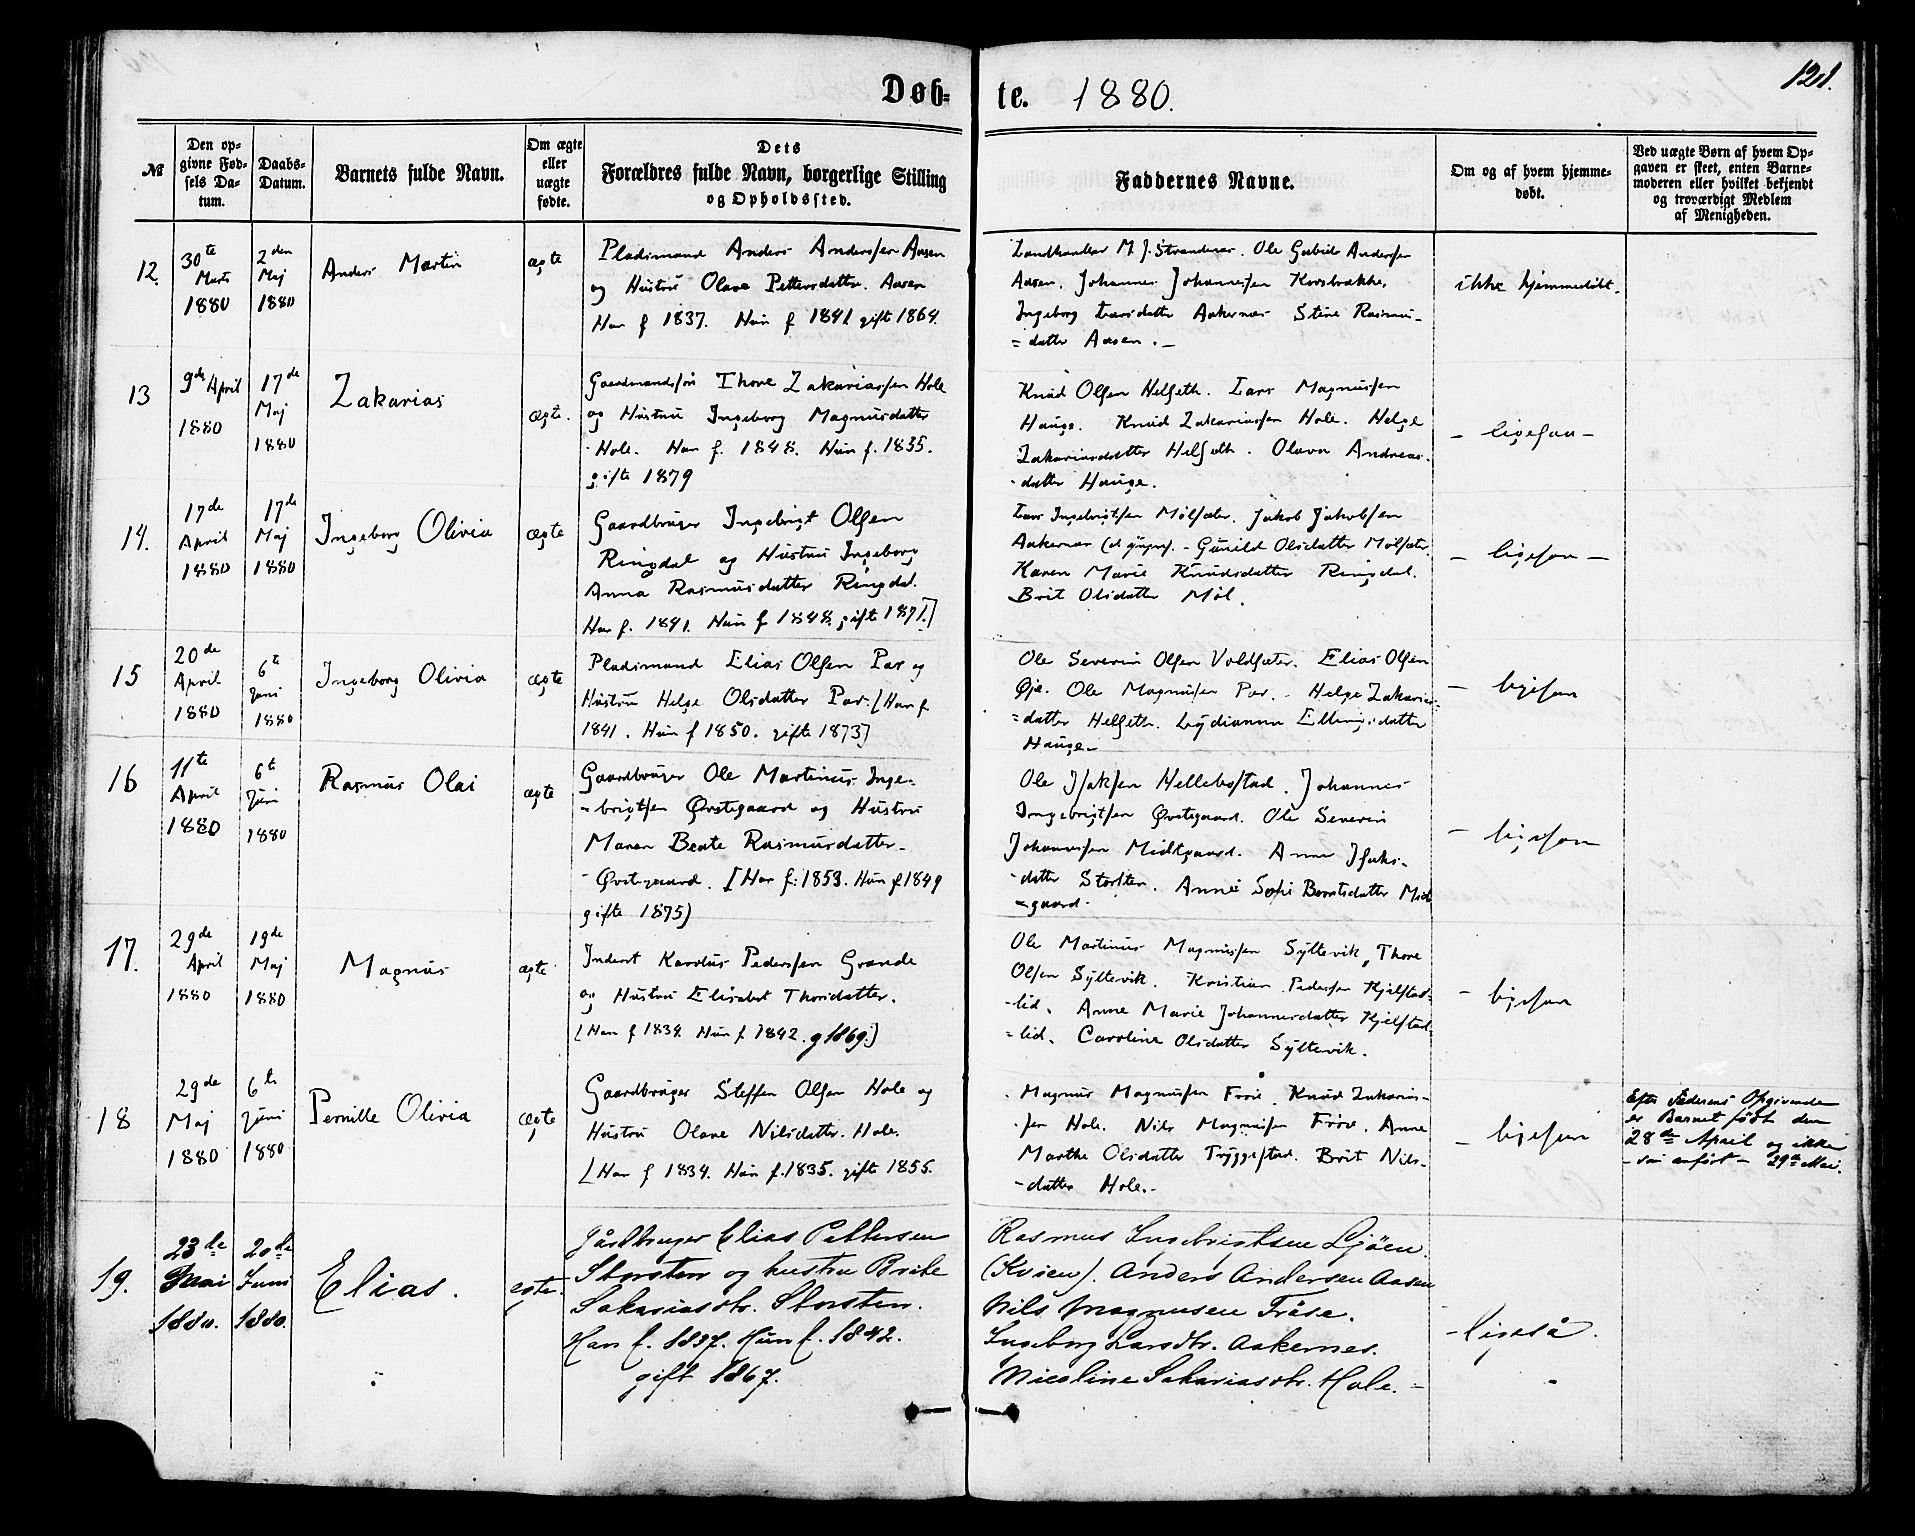 Døb-
te. 1880.
121.
№
Den op-
givne Fød-
sels Da-
tum.
Daabs-
Datum.
Barnets fulde Navn.
Om ægte
eller
uægte
fødte.
Dets
Forældres fulde Navn, borgerlige Stilling
og Opholdssted.
Faddernes Navne.
Om og af hvem hjemme-
døbt.
Ved uægte Børn af hvem Op-
gaven er skeet, enten Barne-
moderen eller hvilket bekjendt
og troværdigt Medlem
af Menigheden.
12.
30te
Marts
1880
2den
Maj
1880
Anders Martin
ægte
Pladsmand Anders Anderssen Aasen
og Hustru Olave Pettersdatter. Aasen
Han f 1837. Hun f 1841 gifte 1864.
Landhandler M. J. Strandenæs. Ole Gabriel Anderssen
Aasen. Johannes Johannessen Korsbrække.
Ingeborg Larsdatter Aakernæs Stine Rasmus-
=datter Aasen.-
ikke hjemmedøbt.
13
9de April
1880
17de
Maj
1880
Zakarias
ægte.
Gaardmandssøn Thore Zakariassen Hole
og Hustru Ingeborg Magnusdatter
Hole. Han f. 1848. Hun f. 1835.
gifte 1879
Knud Olssen Helseth. Lars Magnussen
Hauge. Knud Zakariassen Hole. Helge
Zakariasdatter Helseth. Olava Andreas-
-datter Hauge.
- ligesaa -
14.
17de
April
1880
17de
Maj
1880
Ingeborg Olivia
ægte
Gaardbruger Ingebrigt Olsen
Ringdal og Hustru Ingeborg
Anna Rasmusdatter Ringdal.
Han f. 1841. Hun f 1848. gifte 1871.]
Lars Ingebrigtsen Mølsæter. Jakob Jakobsen
Aakernæs - Gunild Olsdatter Mølsæter.
Karen Marie Knudsdatter Ringdal.
Brit Olsdatter Møl.
- ligesaa -
15
20de
April
1880
6te
Juni
1880
Ingeborg Olivia
ægte
Pladsmand Elias Olsen Par og
Hustru Helge Olsdatter Par. [Han f
1841. Hun f 1850. gifte 1873]
Ole Severin Olsen Voldsæter. Elias Olsen
Øje. Ole Magnussen Par. - Helge Zakarias-
=datter Helseth. Lydianna Ellingsdatter
Hauge-
- ligesaa
16
11te
April
1880
6te
Juni
1880
Rasmus Olai
ægte
Gaardbruger Ole Martinus Inge-
-brigtsen Øvstegaard og Hustru
Maren Beate Rasmusdatter-
- Øvstegaard. [Han f. 1853. Hun f 1849
gifte 1875]
Ole Isaksen Hellebostad. Johannes
Ingebrigtsen Øvstegaard. Ole Severin
Johannessen Midtgaard. Anne Isaks-
-datter Storsten. Anne Sofie Berntsdatter Mid
-gaard.
- ligesaa
17.
29de
April
1880
19de
Maj
1880
Magnus
ægte
Inderst Karolus Pederssen Grande
og Hustru Elisabet Thorsdatter.
[Han f 1834. Hun f 1842. g 1869.]
Ole Martinus Magnussen Syltevik, Thore
Olsen Syltevik. Kristian Pedersen Kjelstad-
-lid. Anne Marie Johannesdatter Kjelstad-
=lid. Caroline Olsdatter Syltevik.
- ligesaa
18
29de
Maj
1880
6te
Juni
1880
Pernille Olivia
ægte
Gaardbruger Steffen Olsen Hole og
Hustru Olave Nilsdatter. Hole.
[Han f 1834. Hun f. 1835. gifte 1855.
Magnus Magnussen Frøie. Knud Zakarias-
-sen Hole. Nils Magnussen Frøse. Anne
Marthe Olsdatter Tryggestad. Brit Nils-
-datter Hole.-
- ligesaa
Efter Faderens Opgivende
er Barnet født den
28de April og ikke
- som anført - 29de Mai.
19.
23de
Mai
1880.
20de
Juni
1880.
Elias.
egte.
Gårdbruger Elias Pettersen
Storsten og hustru Brite
Sakariasdtr. Storsten.
Han f. 1837. Hun f. 1842.
gift 1867.
Rasmus Ingebrigtsen Ljøen.
(Kvien). Anders Andersen Aasen
Nils Magnusen Frøse.
Ingeborg Larsdtr. Aakernes.
Nicoline Sakariasdtr. Hole. -
- ligeså.